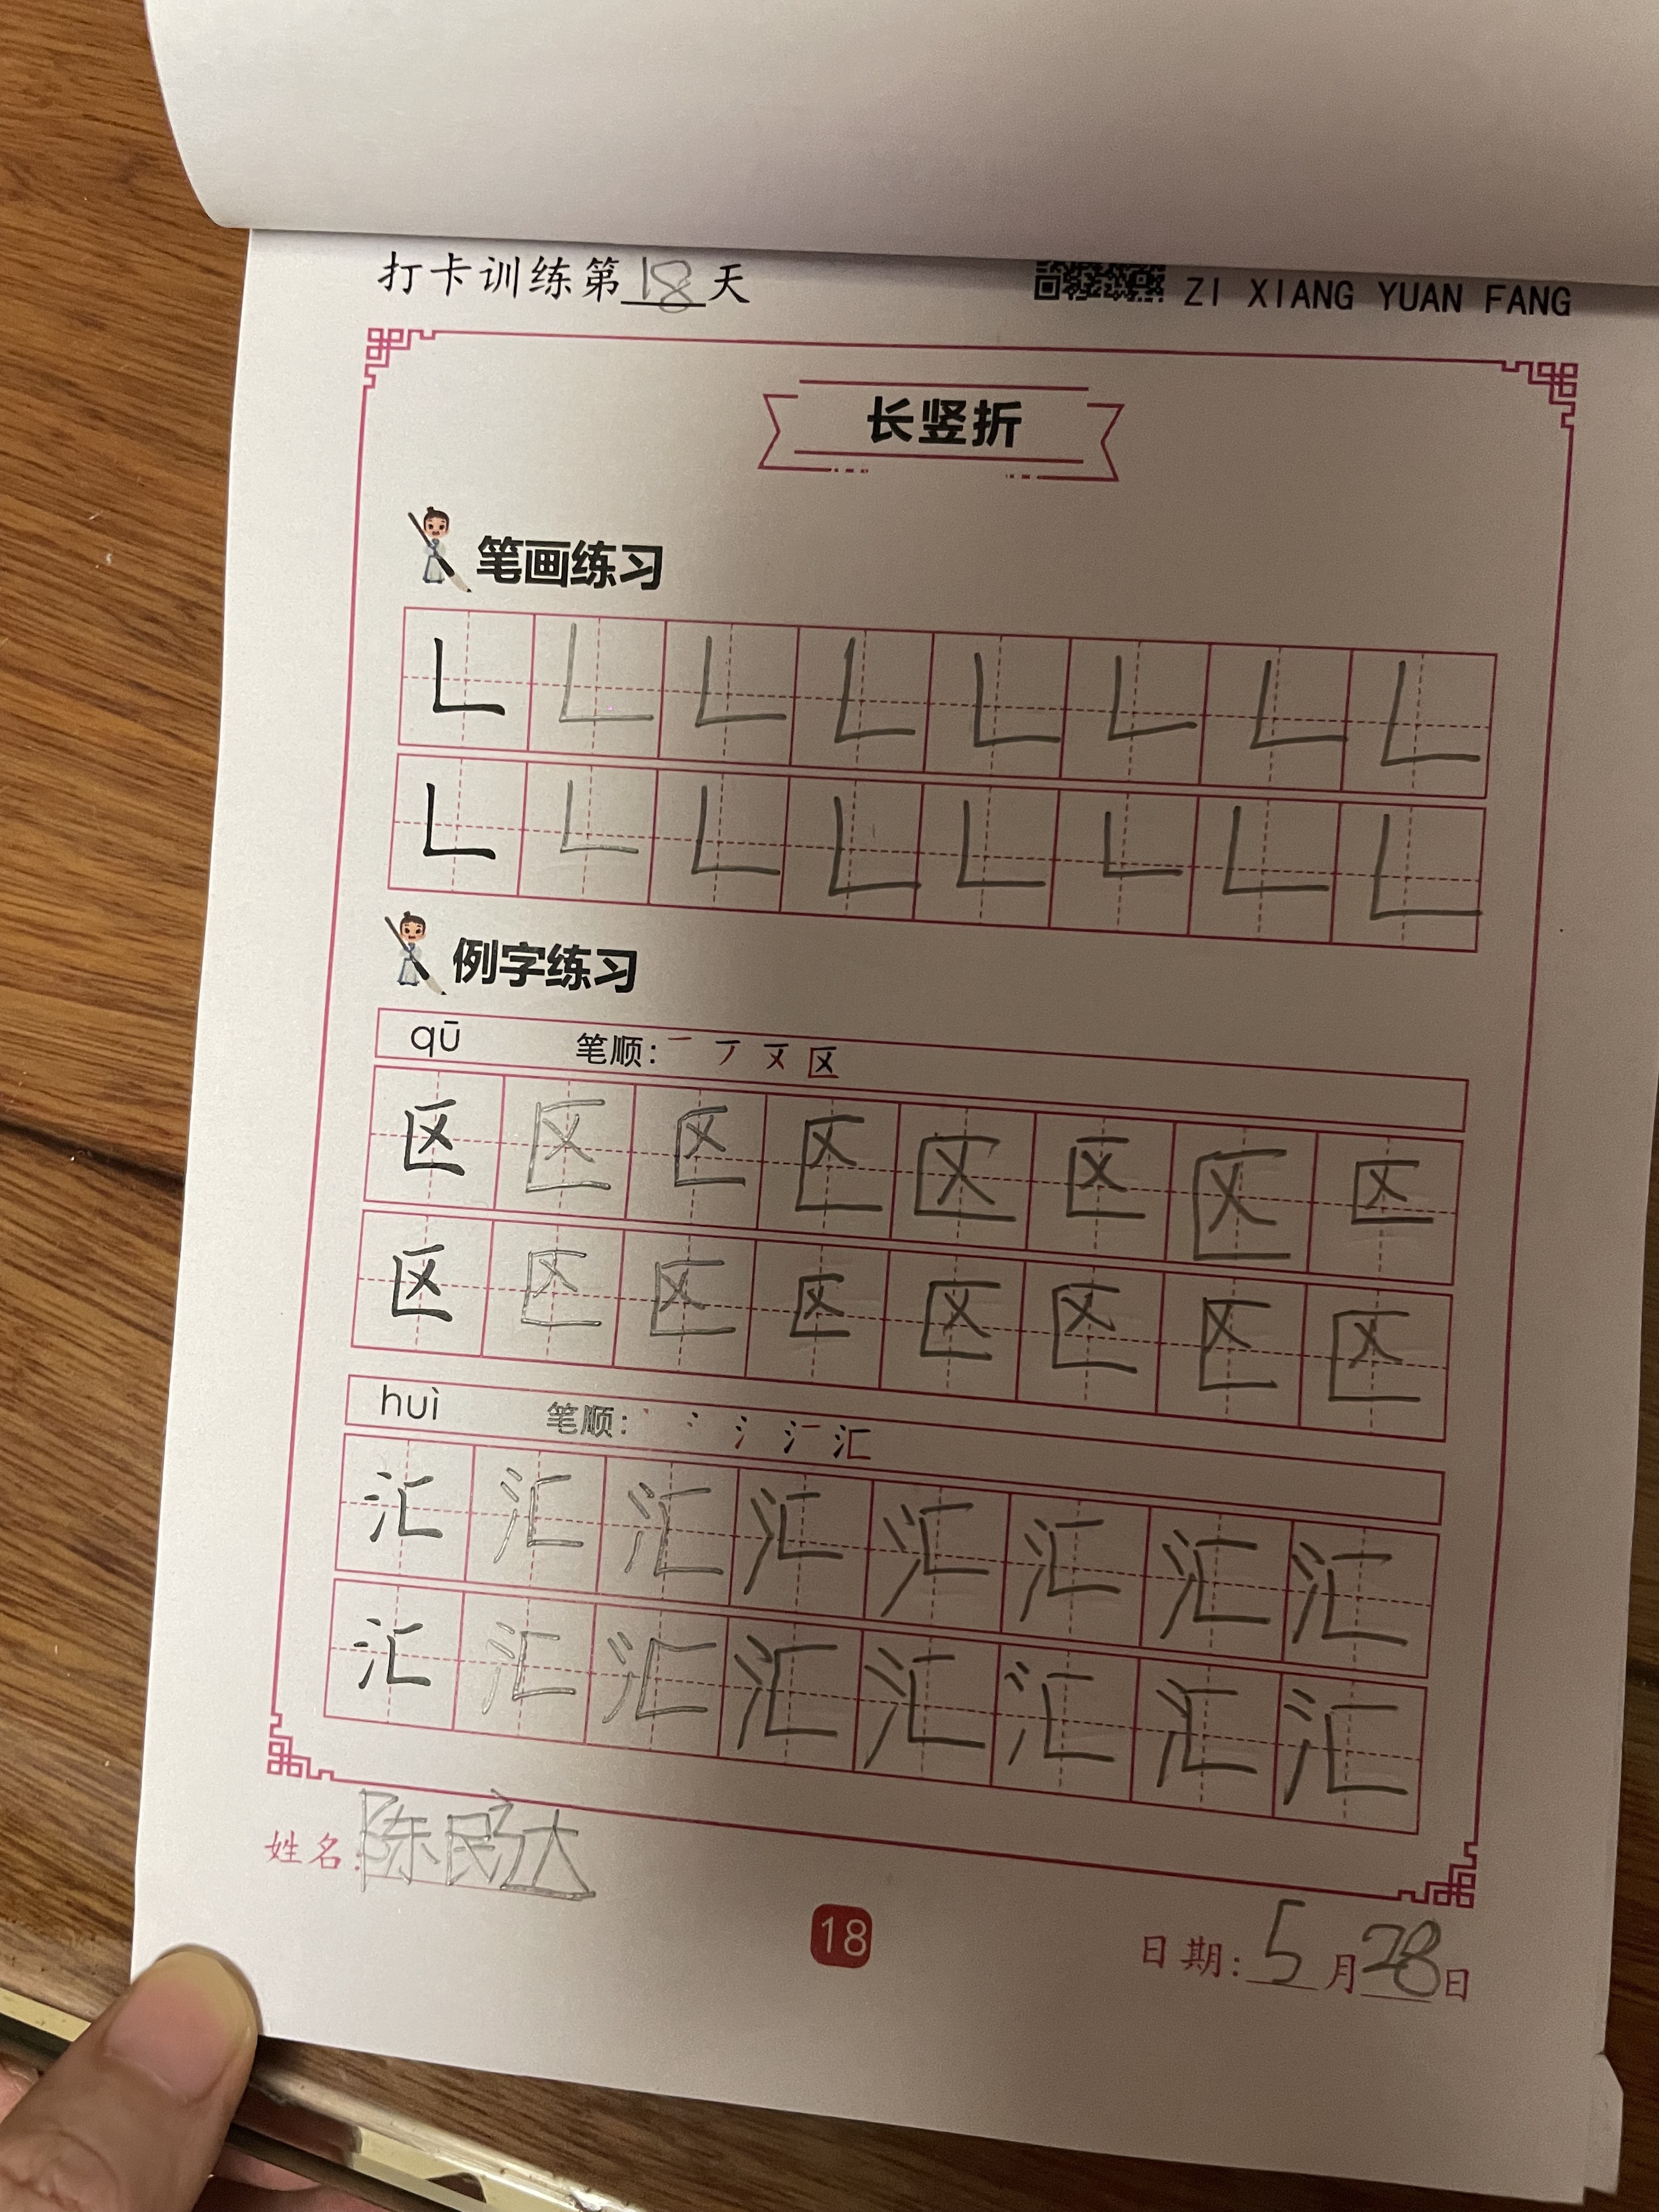 打卡训练第18天
ZI XIANG YUAN FANG
长竖折
笔画练习
𠃊 𠃊 𠃊 𠃊 𠃊 𠃊 𠃊 𠃊
𠃊 𠃊 𠃊 𠃊 𠃊 𠃊 𠃊 𠃊
例字练习
qū 笔顺: 区
区 区 区 区 区 区 区 区
区 区 区 区 区 区 区 区
huì 笔顺: 丶 冫 氵 汇
汇 汇 汇 汇 汇 汇 汇 汇
汇 汇 汇 汇 汇 汇 汇 汇
姓名: 陈
18
日期: 5月28日